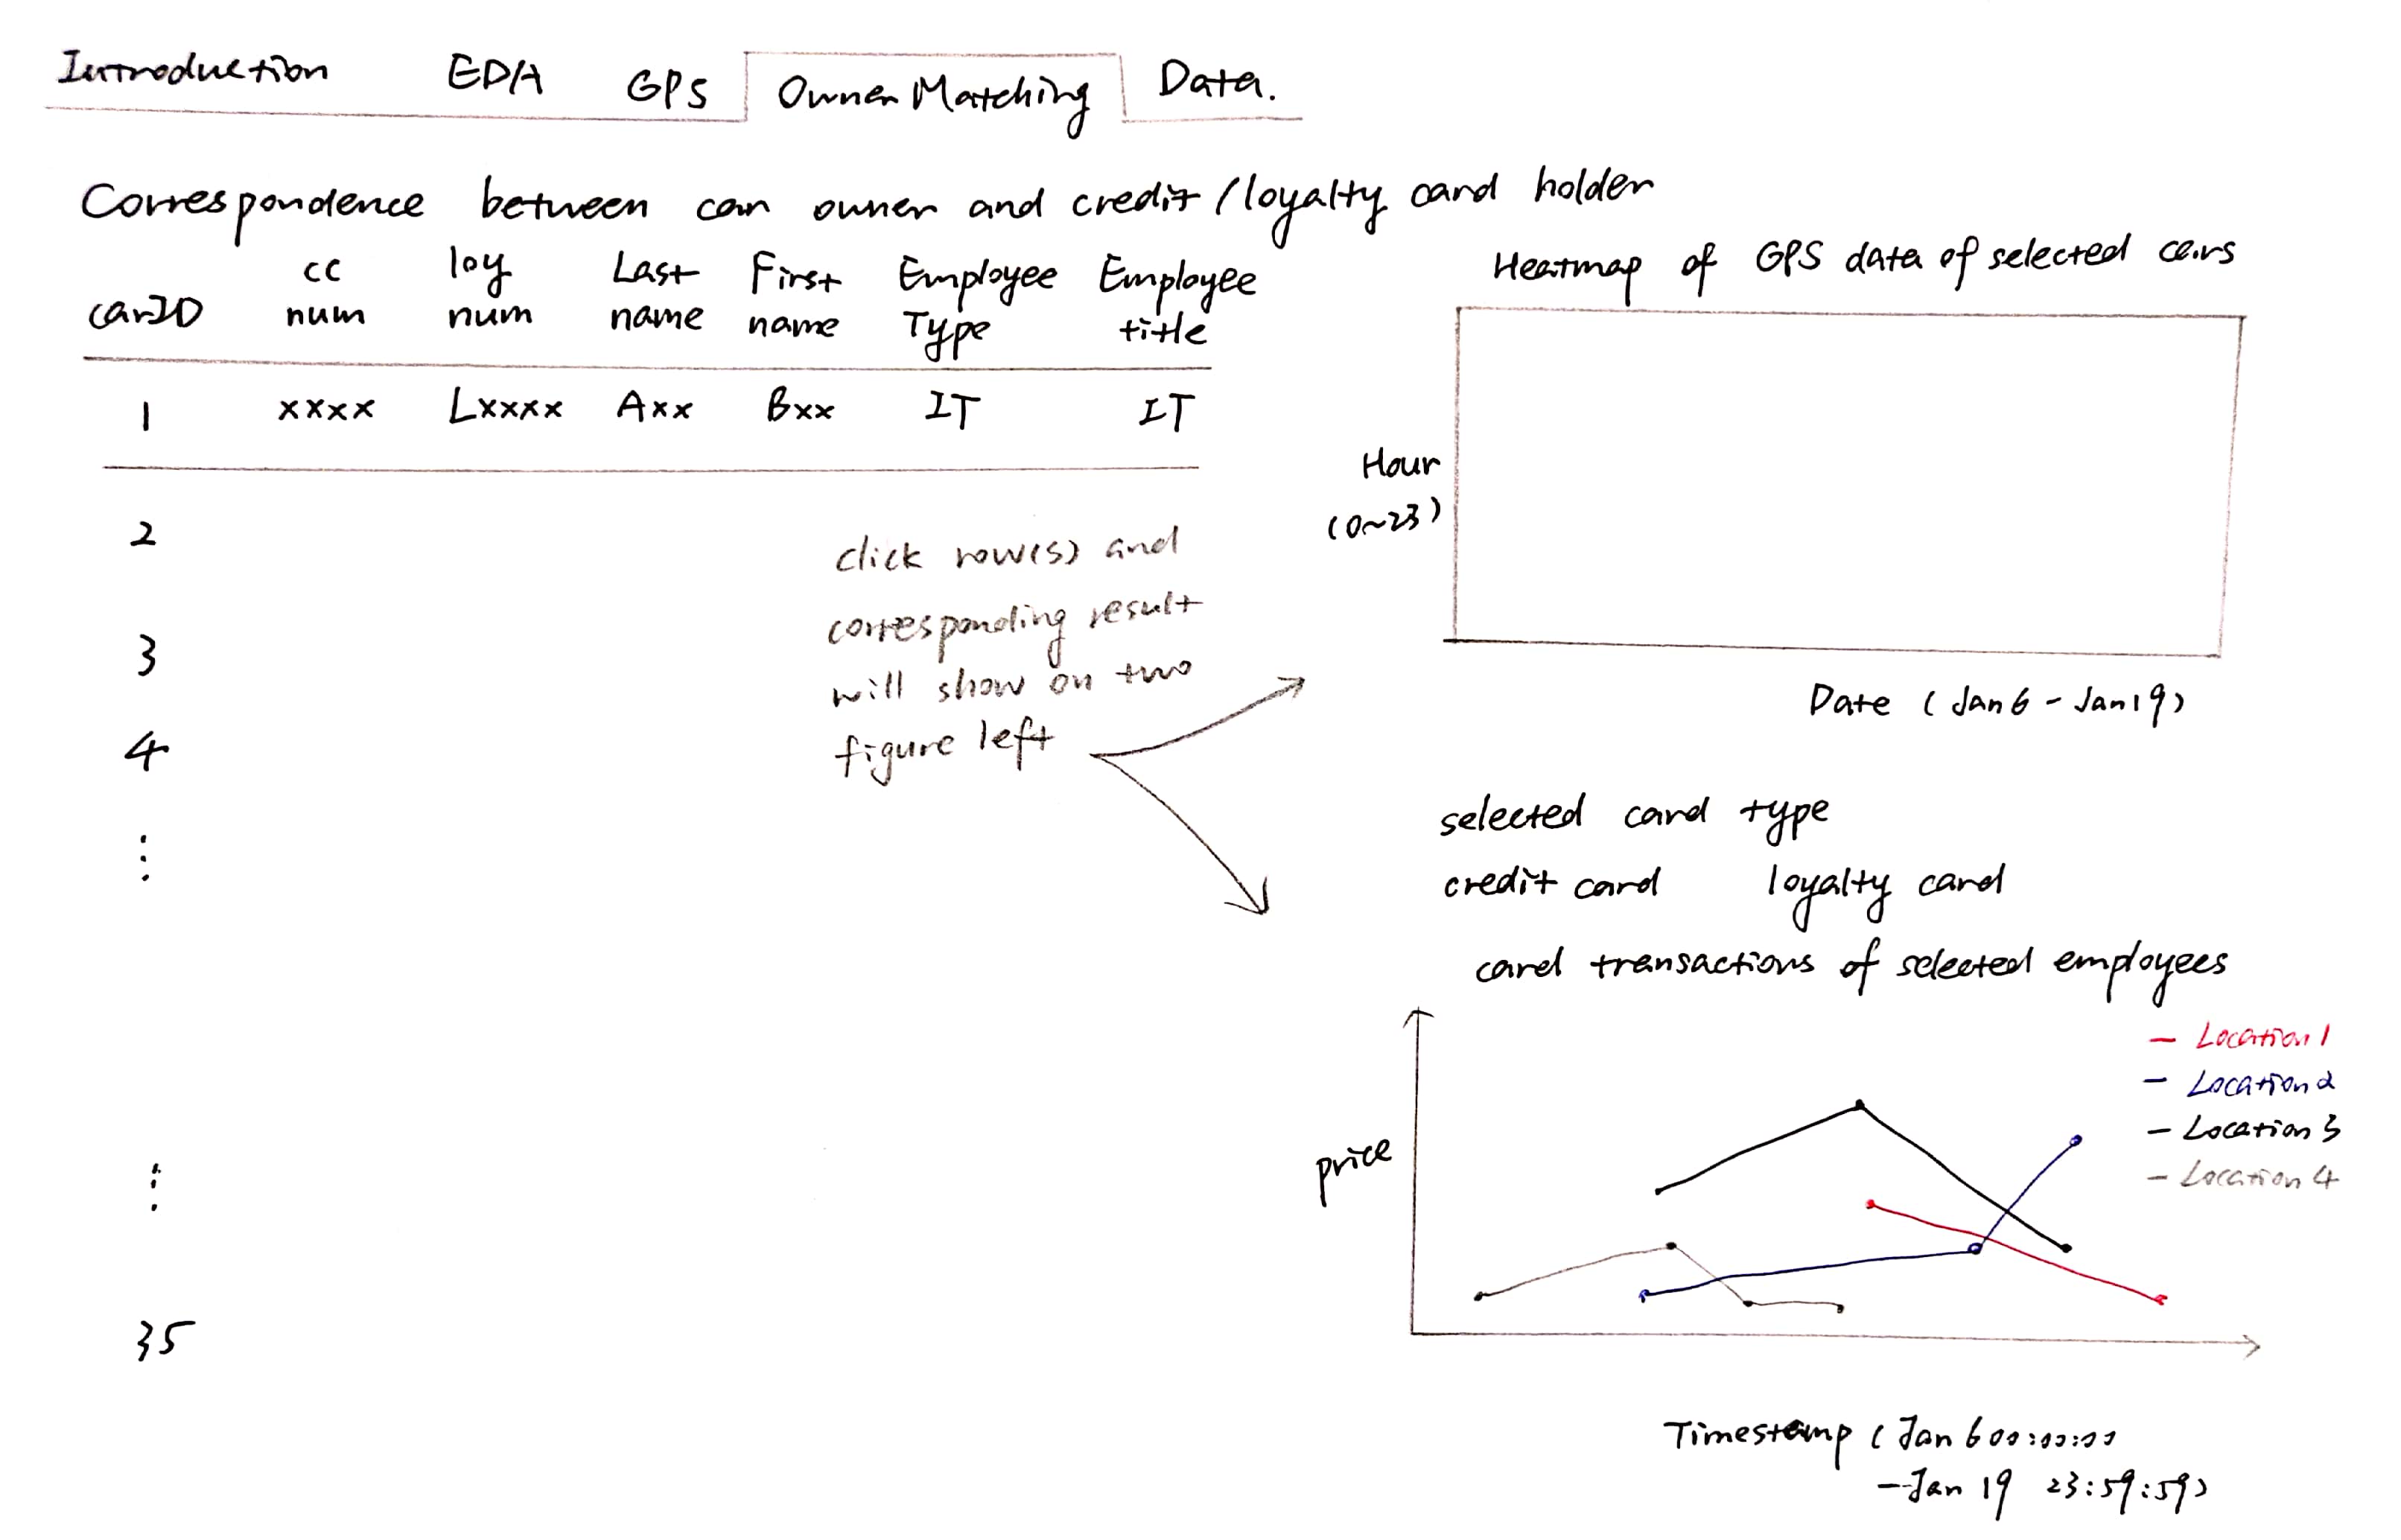 Introduction EDA GPS Owner Matching Data.
Correspondence between car owner and credit/loyalty card holder
carID cc num loy num Last name First name Employee Type Employee title
1 xxxx Lxxxx Axx Bxx IT IT
2
3
4
35
click row(s) and
corresponding result
will show on two
figure left
Heatmap of GPS data of selected cars
Hour
(0~23)
Date (Jan 6 - Jan 19)
selected card type
credit card loyalty card
card transactions of selected employees
- Location 1
- Location 2
- Location 3
- Location 4
price
Timestamp (Jan 6 00:00:00
- Jan 19 23:59:59)